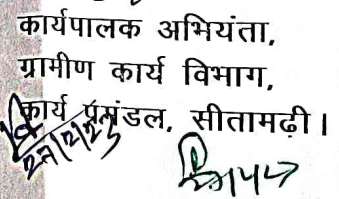 कार्यपालक अभियंता,
ग्रामीण कार्य विभाग,
कार्य प्रमंडल, सीतामढ़ी।
27/2/23